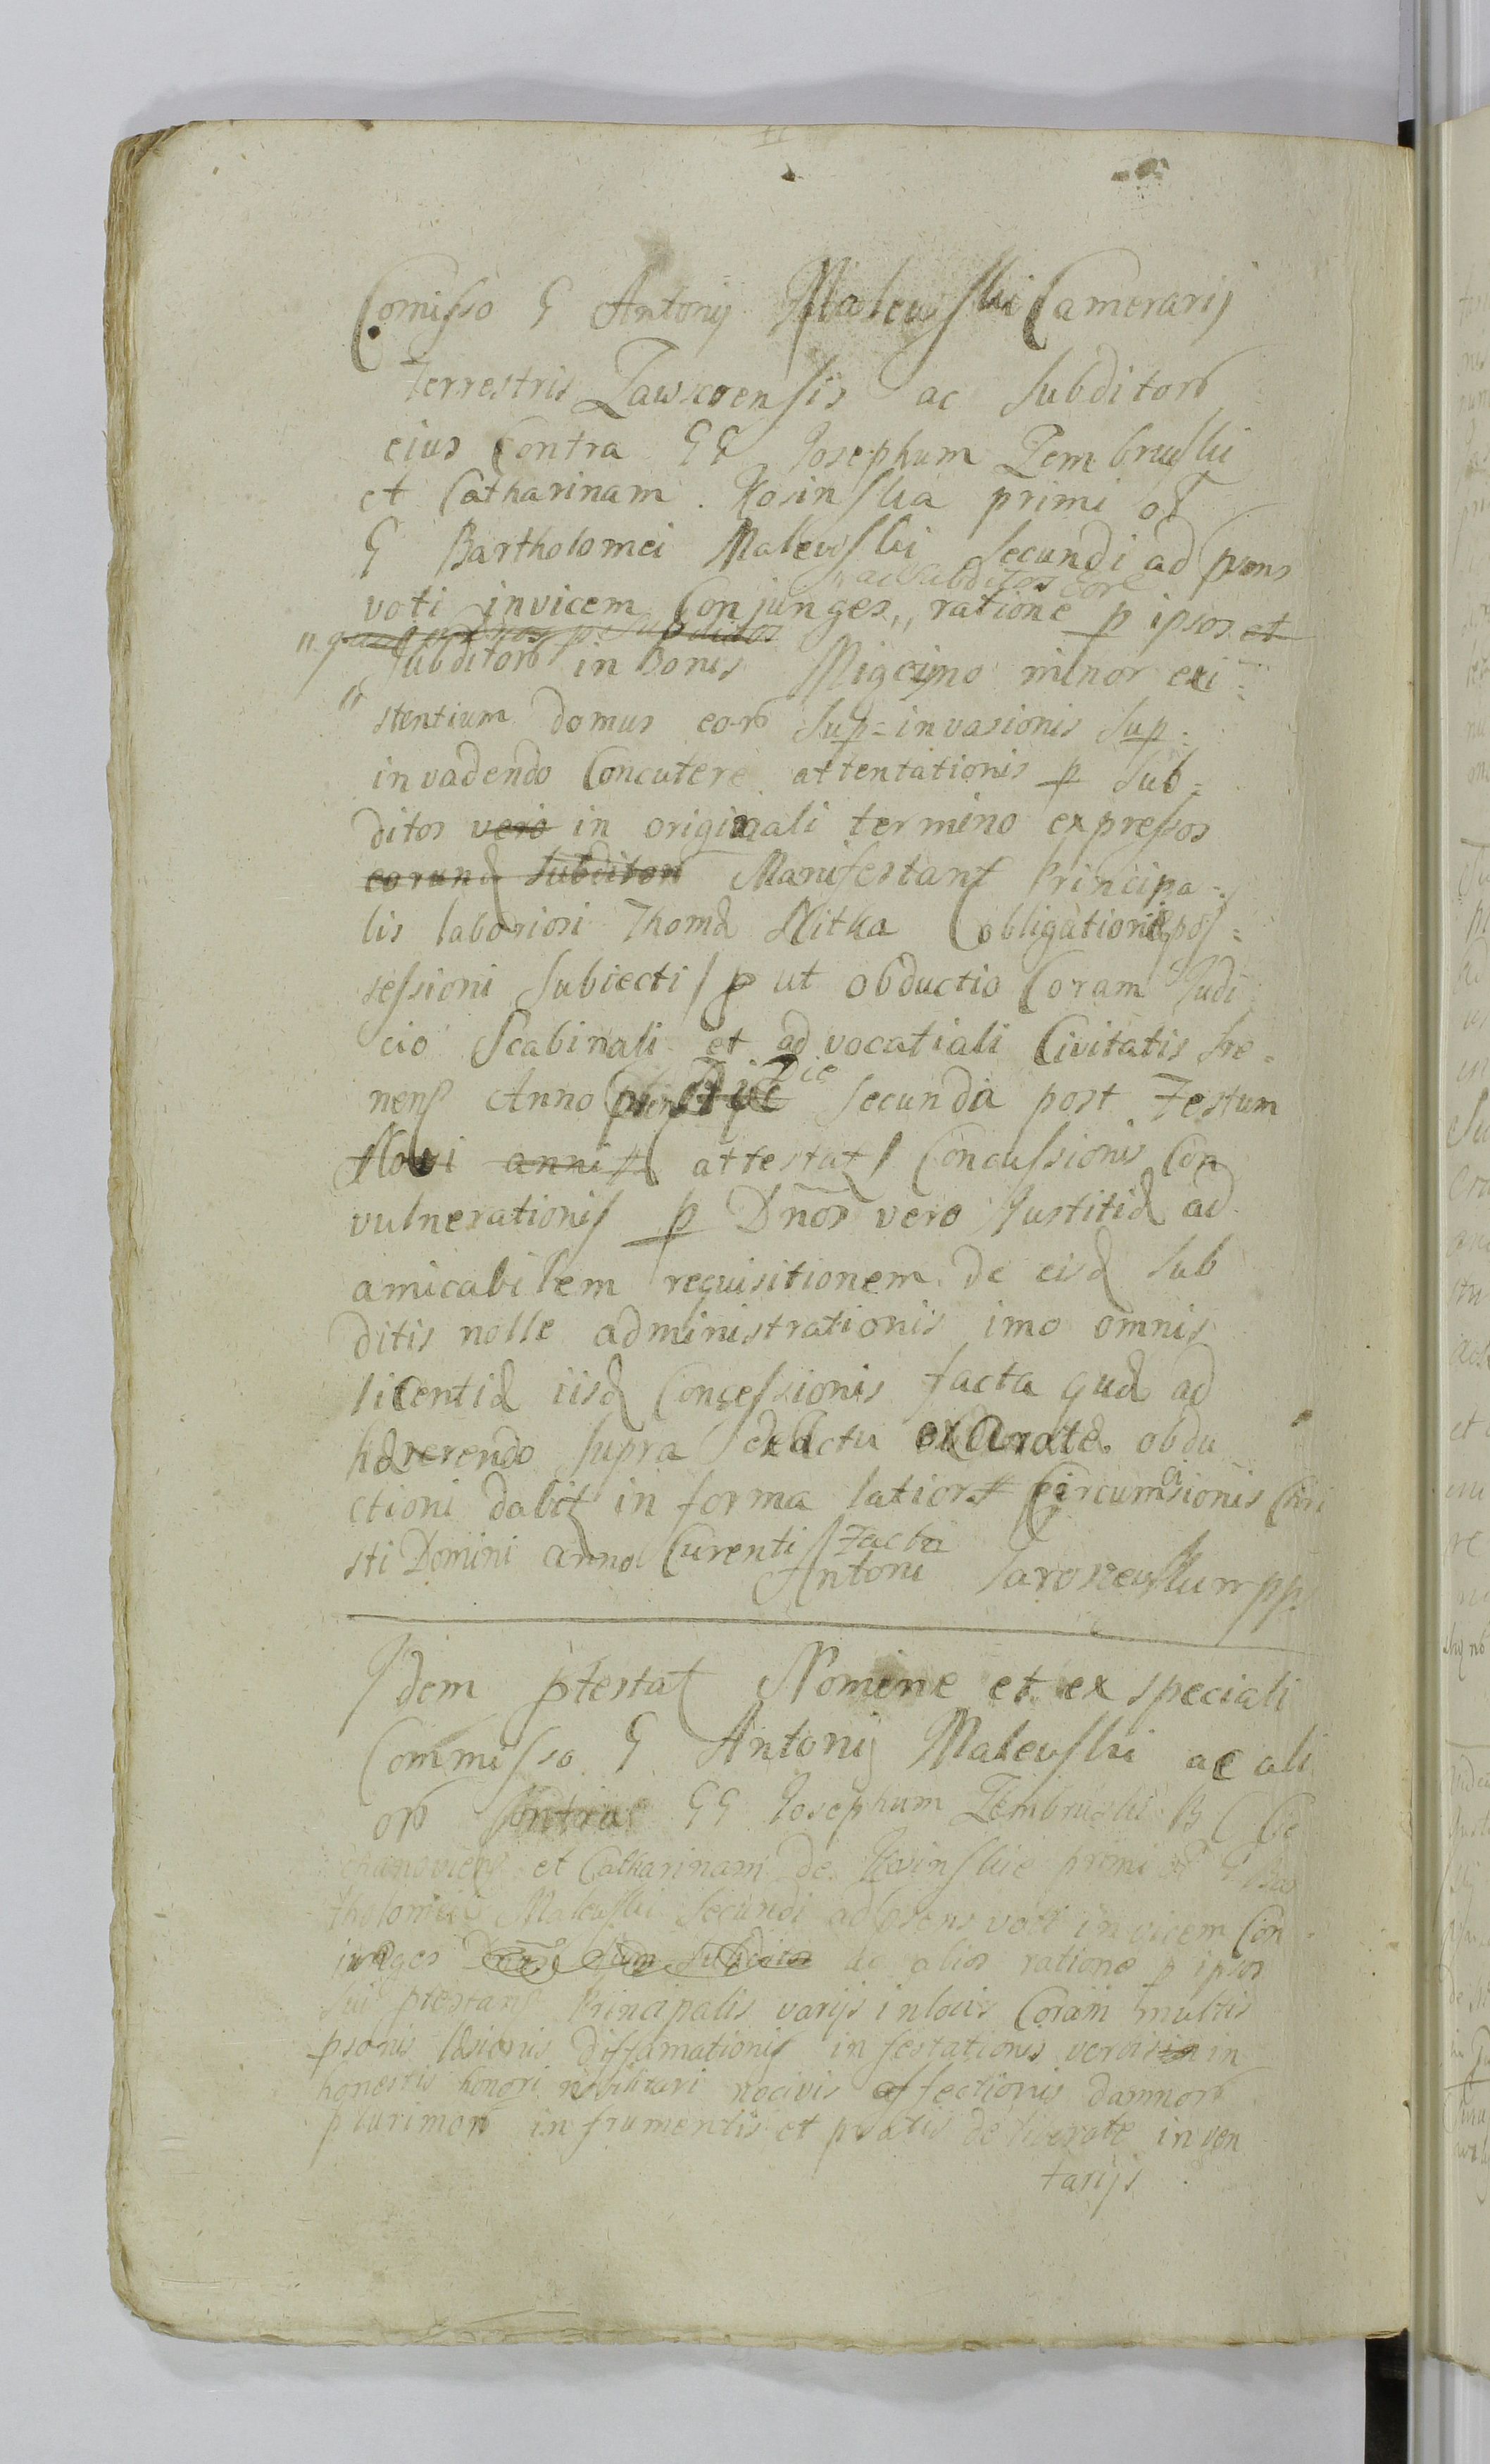 Comisso G Antonij Malewski Camerarij
terrestris Zawscrensis ac Subditorũ
ejus Contra GG Josephum Zembruski
et Catharinam Kosinska primi oĩ
G Bartholomei Malewski Secundi ad prns
ac subditos eorũ
voti invicem Conjunges,, ratione p ipsos et
Subditorũ in bonis Migcyno minor exi=
stentium domus eorũ Sup=invasionis Sup=
invadendo Concutere attentationis p Sub=
ditos vero in originali termino expressos
earund Subditorũ Manifestant Principa=
lis laboriosi Thomæ Nitka Cobligationi pos=
sessioni Subiecti / put obductio Coram Judi
cio Scabinali et advocatiali Civitatis Sre=
nens Anno prnti Die Secunda post Festum
Novi anni attestat / Concussionis Con
vulnerationis p Dnos vero Justitiæ ad
amicabilem requisitionem de eisd Sub
ditis nolle administrationis imo omnis
licentiæ iisd Concessionis facta quæ ad
hærerendo Supra de actu exaratæ obdu
ctioni dabit in forma latiori Circumcisionis Chri
sti Domini anno Curenti / Facta
Antoni Jaroszewski mpp
Idem ptestat Nomine et ex speciali
Commisso G Antonij Malewski ac ali
orũ Contra GG Josephum Zembruski B C Cie
chanoviens et Catharinam de Kosinskie primi oĩ G Bar
tholomei Malewski Secundi ad prsens voti invicem Con
iunges ac alios ratione p ipsos
Sui ptestans Principalis varijs in locis Coram multis
psonis læsionis diffamationis infestationis verbis in
honestis honori nobilitari nocivis affectionis damnorũ
plurimorũ in frumentis et pratis deliberate inven
tarijs